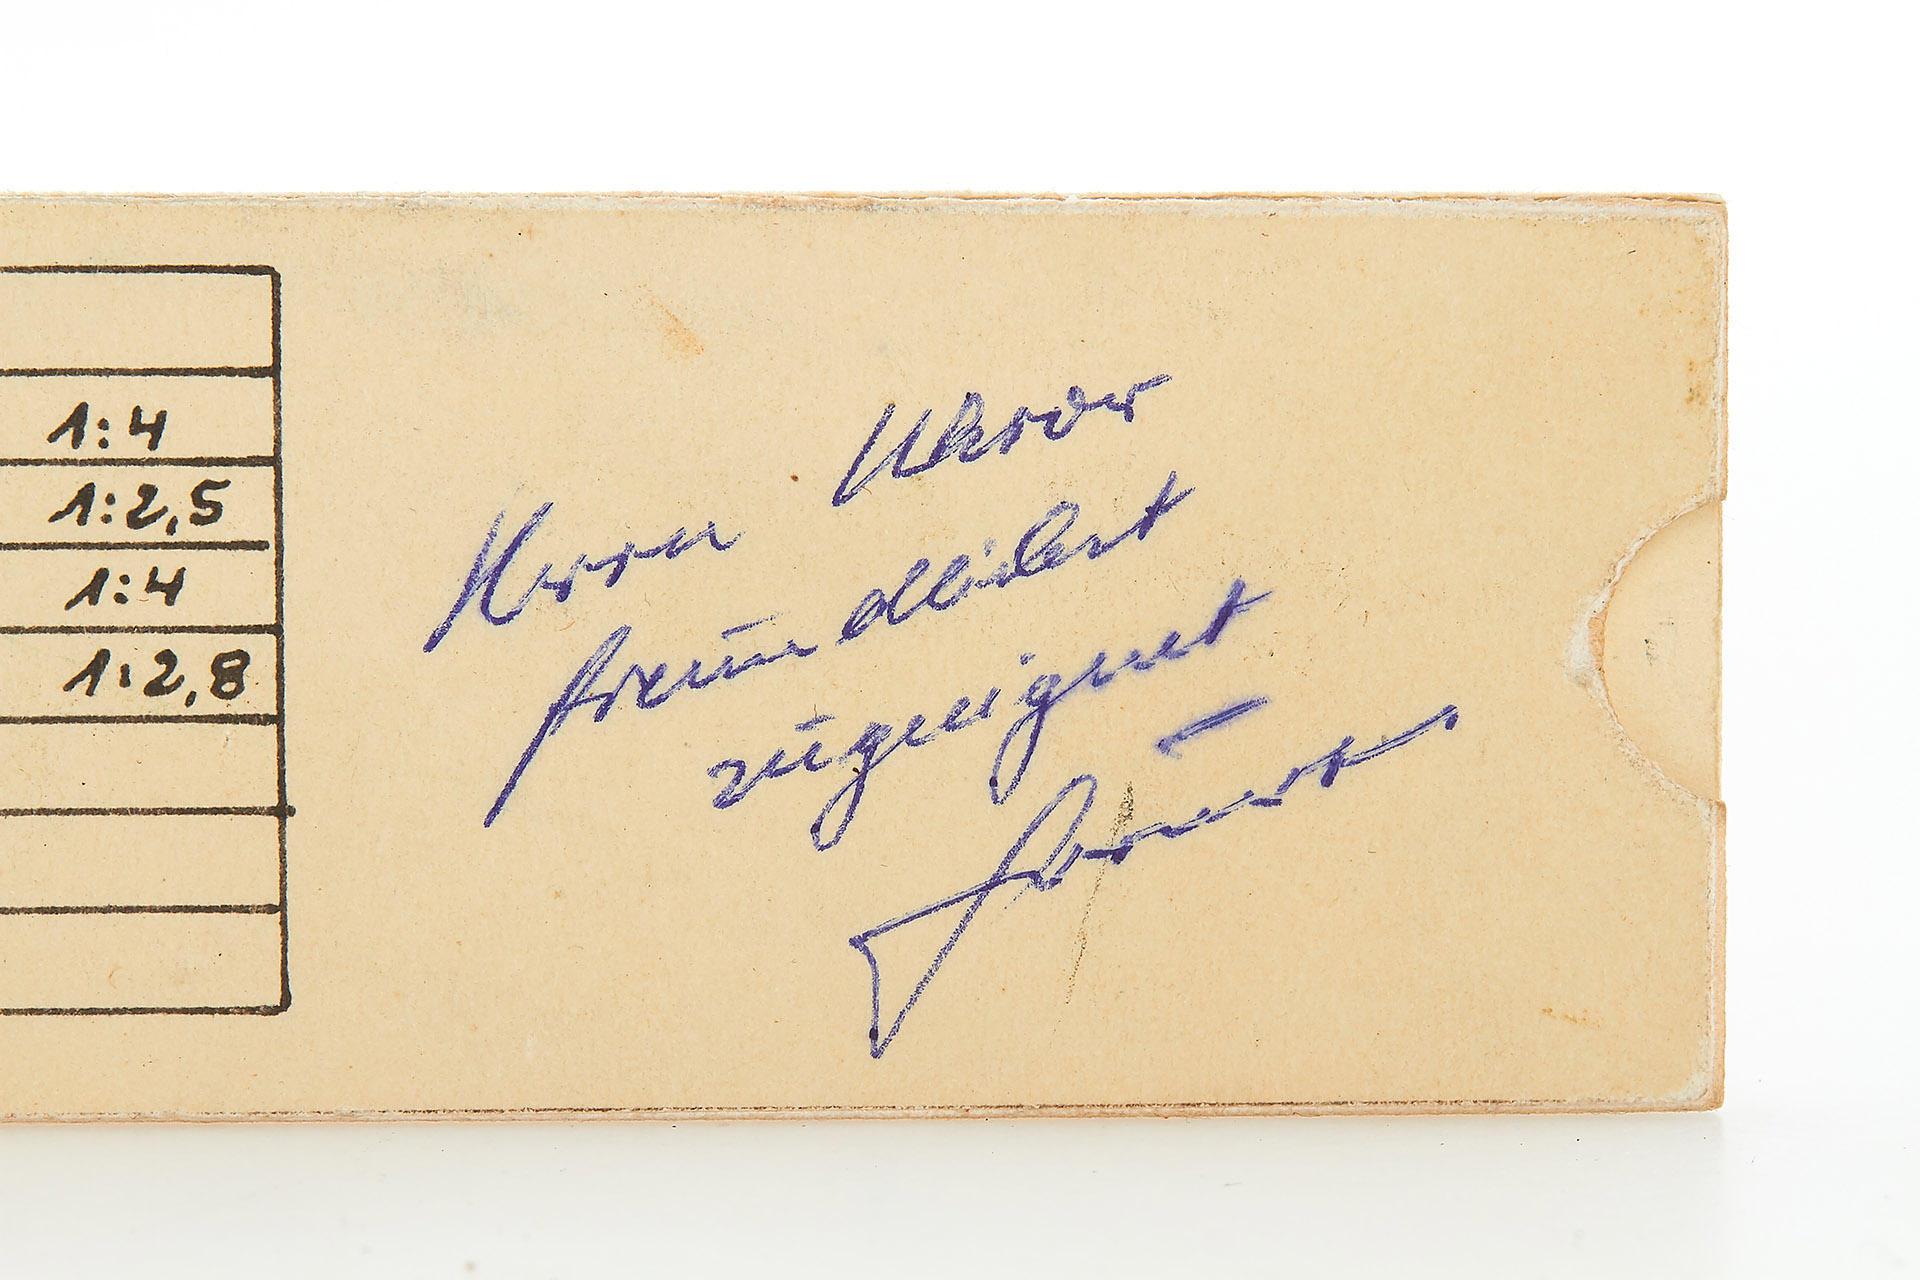 1:4
1:2,5
1:4
1:2,8
Herrn
freundlichst
zugeeignet